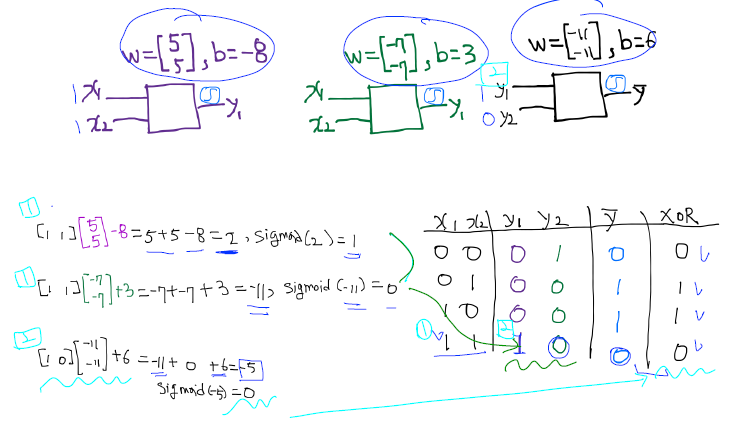 w=[5 5], b=-8
w=[-7 -7], b=3
w=[-11 -11], b=6
1 x1
1 x2
S
y1
x1
x2
S
y1
2
1 y1
0 y2
S
ȳ
1
[1 1][5 5]-8=5+5-8=2, sigmoid(2)=1
1
[1 1][-7 -7]+3=-7+-7+3=-11, sigmoid(-11)=0
2
[1 0][-11 -11]+6=-11+0+6=-5
sigmoid(-5)=0
x1 x2 y1 y2 ȳ XOR
0 0 0 1 0 0 ✓
0 1 0 0 1 1 ✓
1 0 0 0 1 1 ✓
1 ✓ 1 1 2 1 0 0 0 ✓